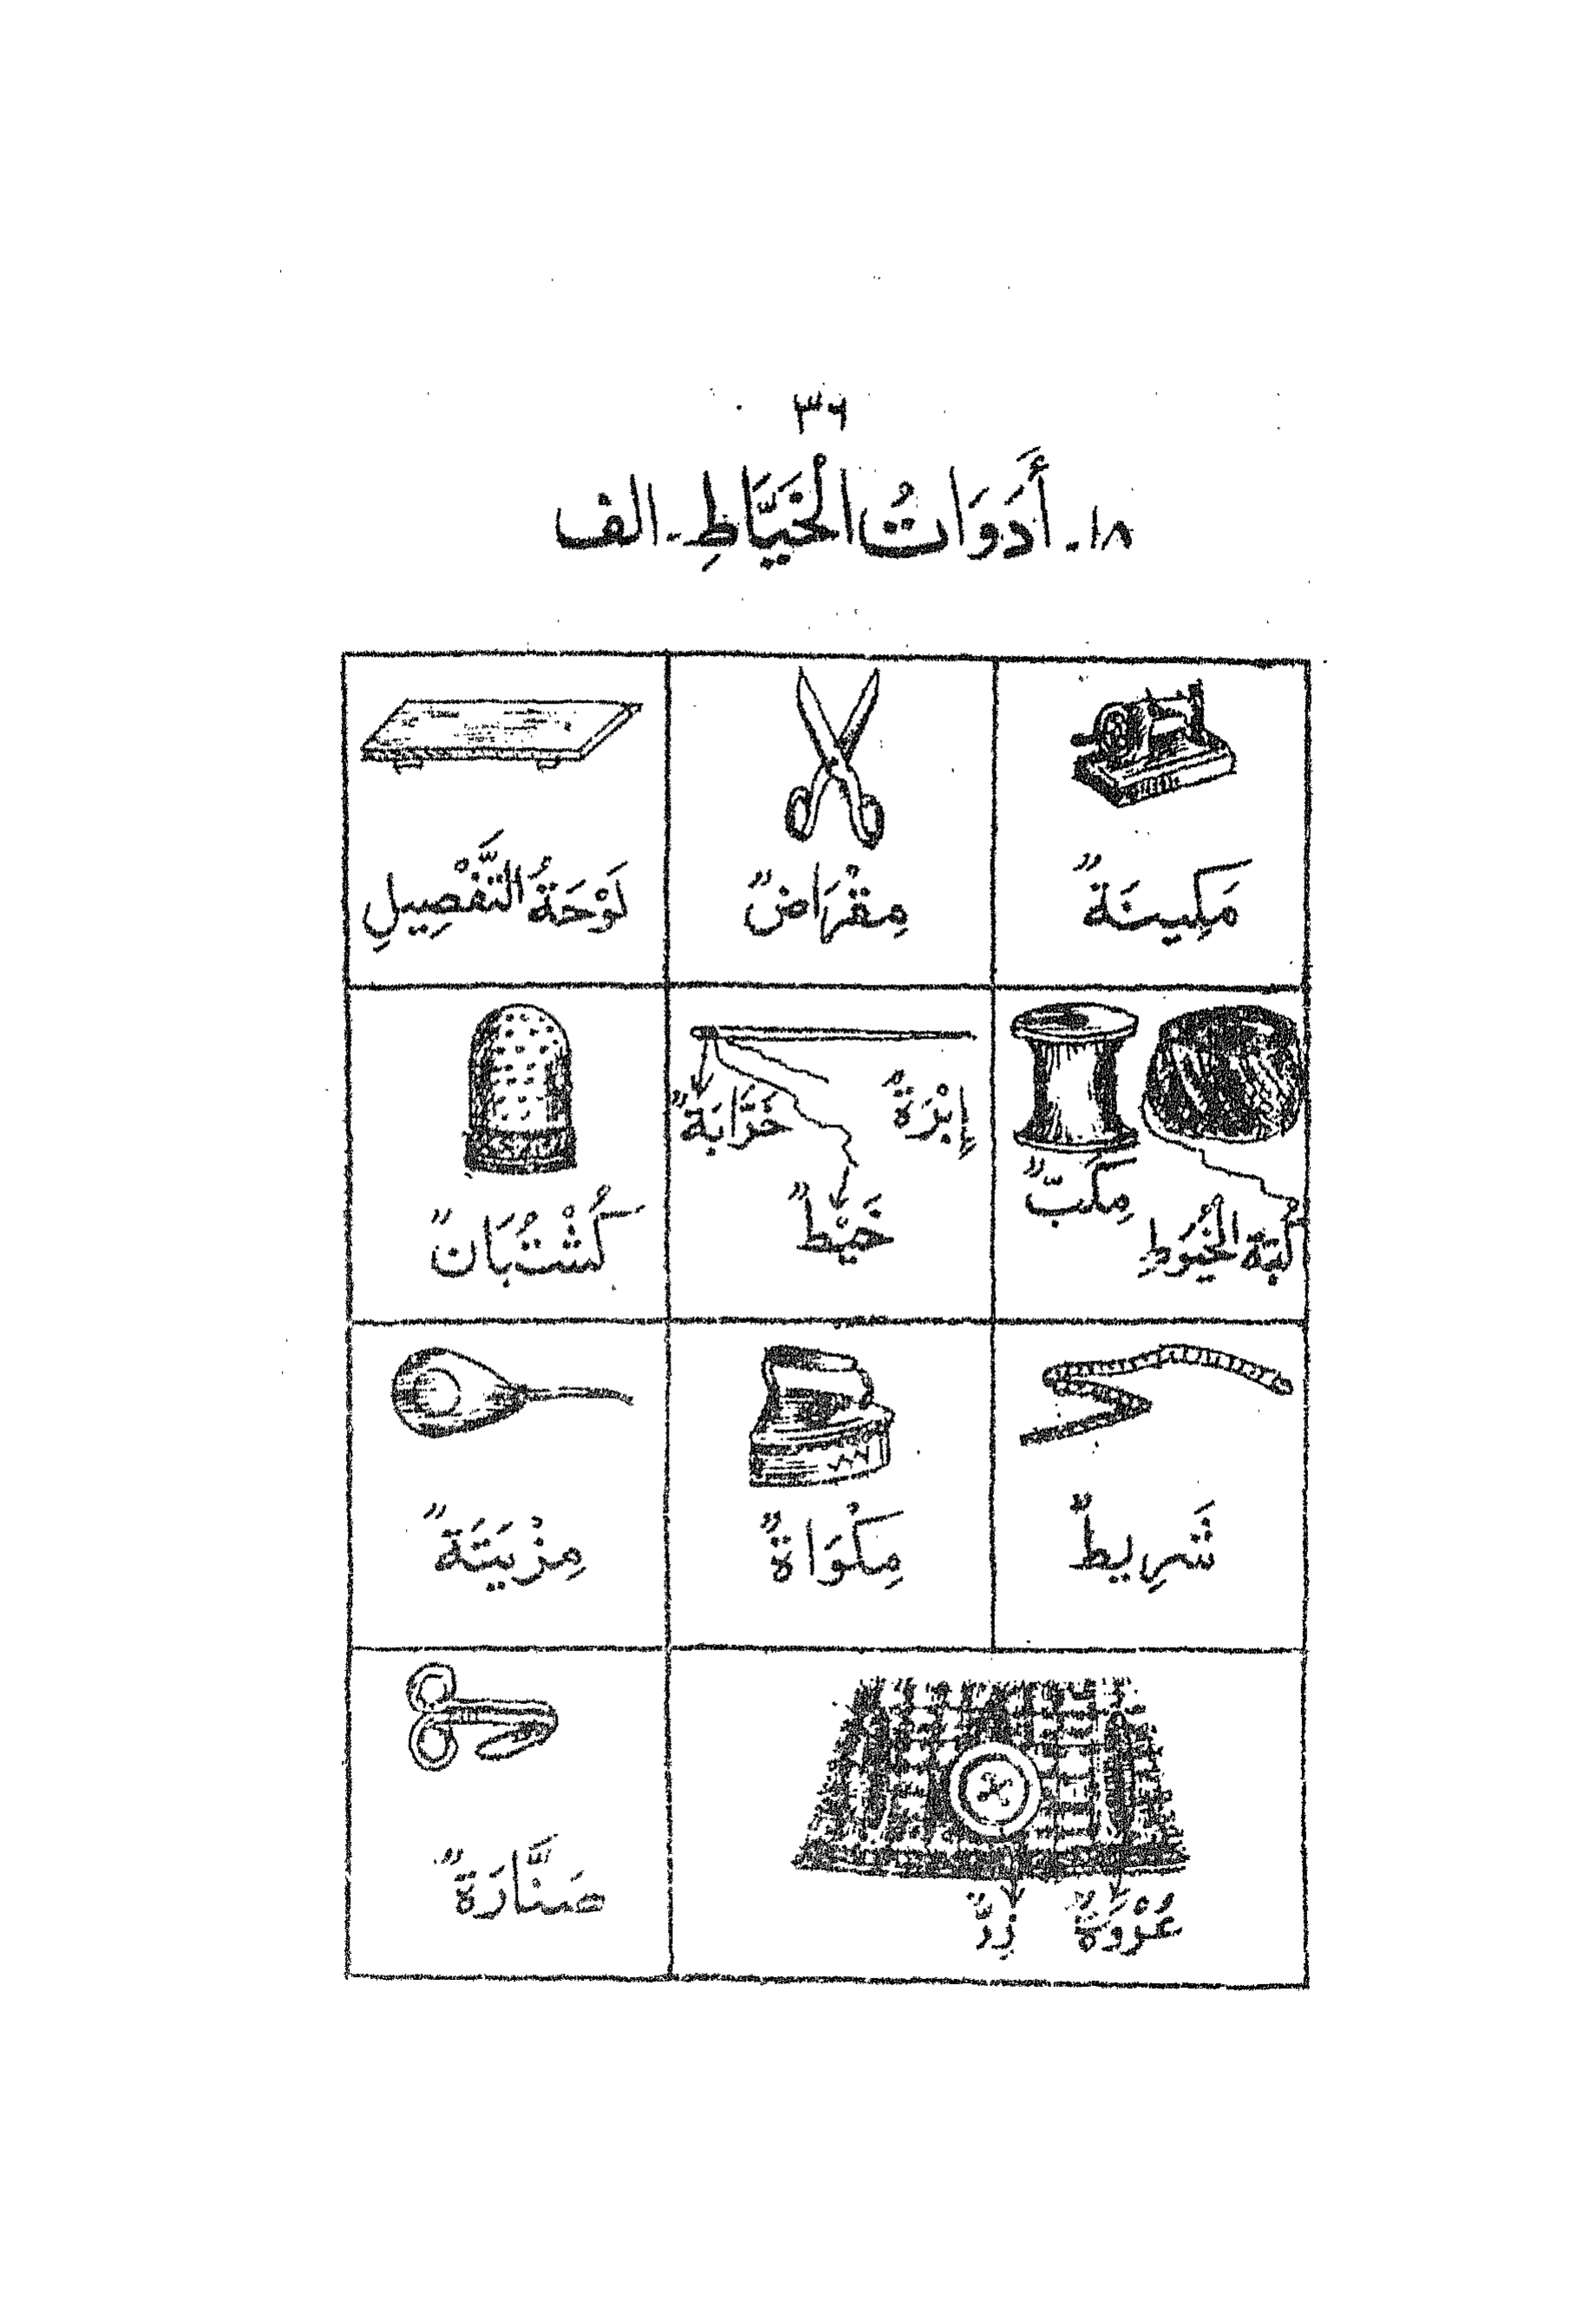 ٣٦
١٨. أَدَوَاتُ الْخَيَّاطِ - الف
مَكِينَةٌ
مِقْرَاضٌ
لَوْحَةُ التَّفْصِيلِ
مِكَبٌّ
كُبَّةُ الْخُيُوطِ
إِبْرَةٌ
خَرَّابَةٌ
خَيْطٌ
كُشْتُبَانٌ
شَرِيطٌ
مِكْوَاةٌ
مِزْيَتَةٌ
عُرْوَةٌ
زِرٌّ
صَنَّارَةٌ